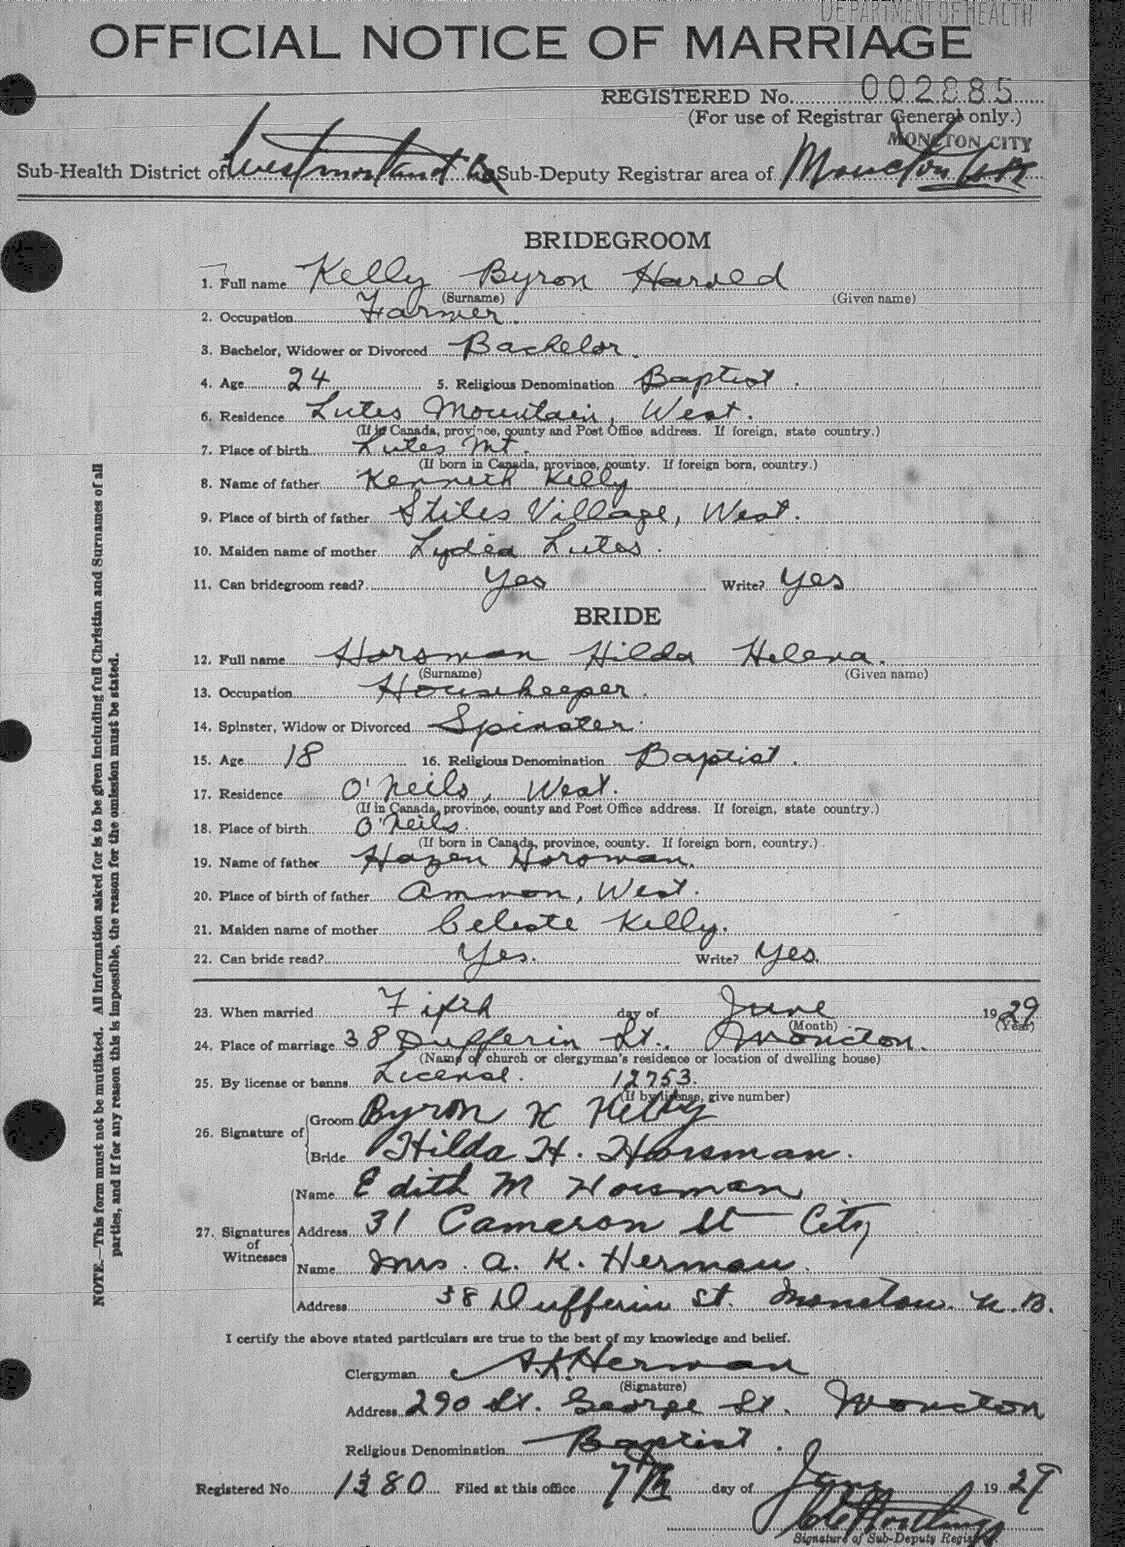 DEPARTMENT OF HEALTH
OFFICIAL NOTICE OF MARRIAGE
REGISTERED No. 002885
(For use of Registrar General only.)
MONCTON CITY
Sub-Health District of Westmorland Co Sub-Deputy Registrar area of Moncton
BRIDEGROOM
1. Full name Kelly Byron Harold
(Surname) (Given name)
2. Occupation Farmer.
3. Bachelor, Widower or Divorced Bachelor.
4. Age 24 5. Religious Denomination Baptist.
6. Residence Lutes Mountain, West.
(If in Canada, province, county and Post Office address. If foreign, state country.)
7. Place of birth Lutes Mt.
(If born in Canada, province, county. If foreign born, country.)
8. Name of father Kenneth Kelly
9. Place of birth of father Stiles Village, West.
10. Maiden name of mother Lydia Lutes.
11. Can bridegroom read? Yes Write? Yes
BRIDE
12. Full name Horsman Hilda Helena.
(Surname) (Given name)
13. Occupation Housekeeper.
14. Spinster, Widow or Divorced Spinster.
15. Age 18 16. Religious Denomination Baptist.
17. Residence O'Neils, West.
(If in Canada, province, county and Post Office address. If foreign, state country.)
18. Place of birth O'Neils.
(If born in Canada, province, county. If foreign born, country.)
19. Name of father Hazen Horsman.
20. Place of birth of father Ammon, West.
21. Maiden name of mother Celeste Kelly.
22. Can bride read? Yes. Write? Yes.
23. When married Fifth day of June 1929
(Month) (Year)
24. Place of marriage 38 Dufferin St., Moncton.
(Name of church or clergyman's residence or location of dwelling house)
25. By license or banns License. 12753.
(If by license, give number)
26. Signature of
Groom Byron H Kelly
Bride Hilda H. Horsman.
27. Signatures of Witnesses
Name Edith M Horsman
Address 31 Cameron St City
Name Mrs. A. K. Herman.
Address 38 Dufferin St. Moncton. N.B.
I certify the above stated particulars are true to the best of my knowledge and belief.
Clergyman A. K. Herman
(Signature)
Address 290 St. George St. Moncton
Religious Denomination Baptist.
Registered No. 1380 Filed at this office 7th day of June 1929
Signature of Sub-Deputy Registrar
NOTE.—This form must not be mutilated. All information asked for is to be given including full Christian and Surnames of all
parties, and if for any reason this is impossible, the reason for the omission must be stated.